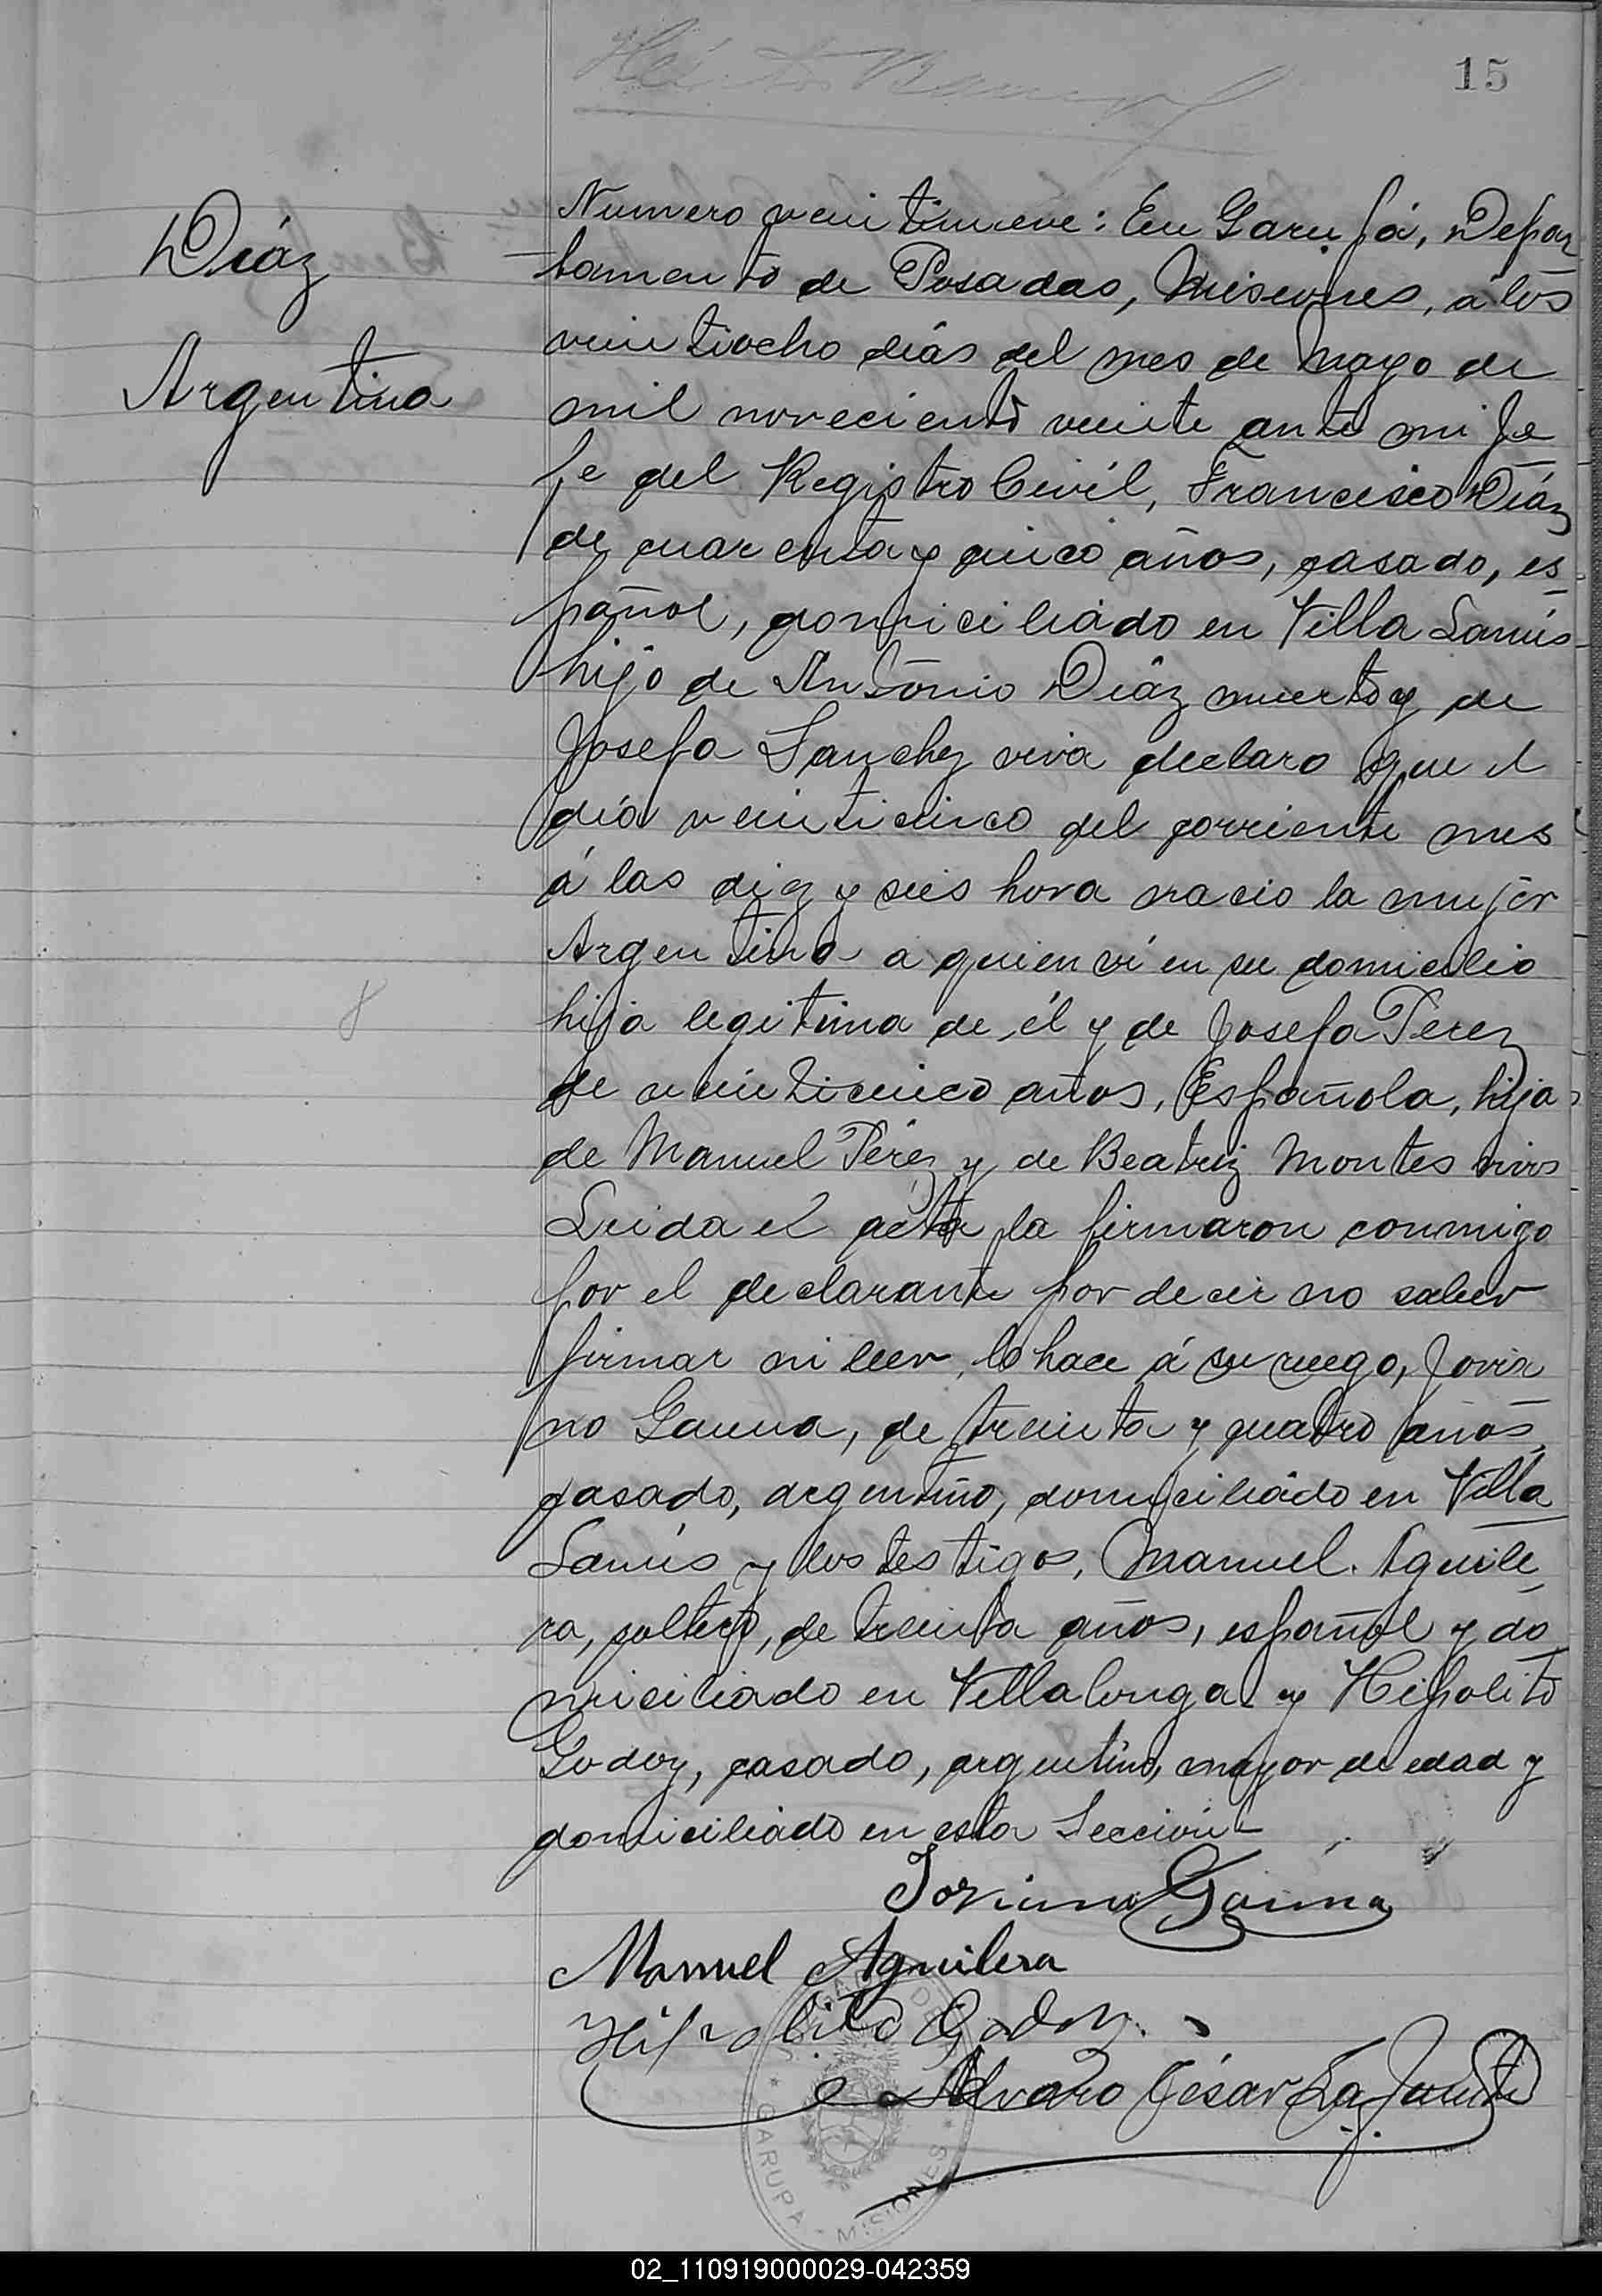 15
Díaz
Argentina
Numero veintinueve: En Garupá, Depar
tamento de Posadas, Misiones, á los
veintiocho días del mes de Mayo de
mil novecientos veinte ante mi Je
fe del Registro Civil, Francisco Díaz
de cuarenta y cinco años, casado, es
pañol, domiciliado en Villa Lanús
hijo de Antonio Díaz muerto y de
Josefa Sanchez viva declaro que el
día veinticinco del corriente mes
á las diez y seis hora nacio la mujer
Argentina a quien ví en su domicilio
hija legitima de él y de Josefa Perez
de veinticinco años, Española, hija
de Manuel Pérez y de Beatriz Montes vivos
Leida el acta la firmaron conmigo
por el declarante por decir no saber
firmar ni leer, lo hace á su ruego, Jovia
no Gauna, de treinta y cuatro años,
casado, argentino, domiciliado en Villa
Lanús y los testigos, Manuel Aguile
ra, soltero, de treinta años, español y do
miciliado en Villalonga y Hipolito
Godoy, casado, argentino, mayor de edad y
domiciliado en esta Sección
Joviano Gauna
Manuel Aguilera
Hipolito Godoy
Alvaro César La Fuente
GARUPA - MISIONES
02_110919000029-042359